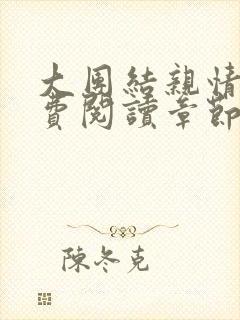 大團結親情
費閱讀章節
陳冬克